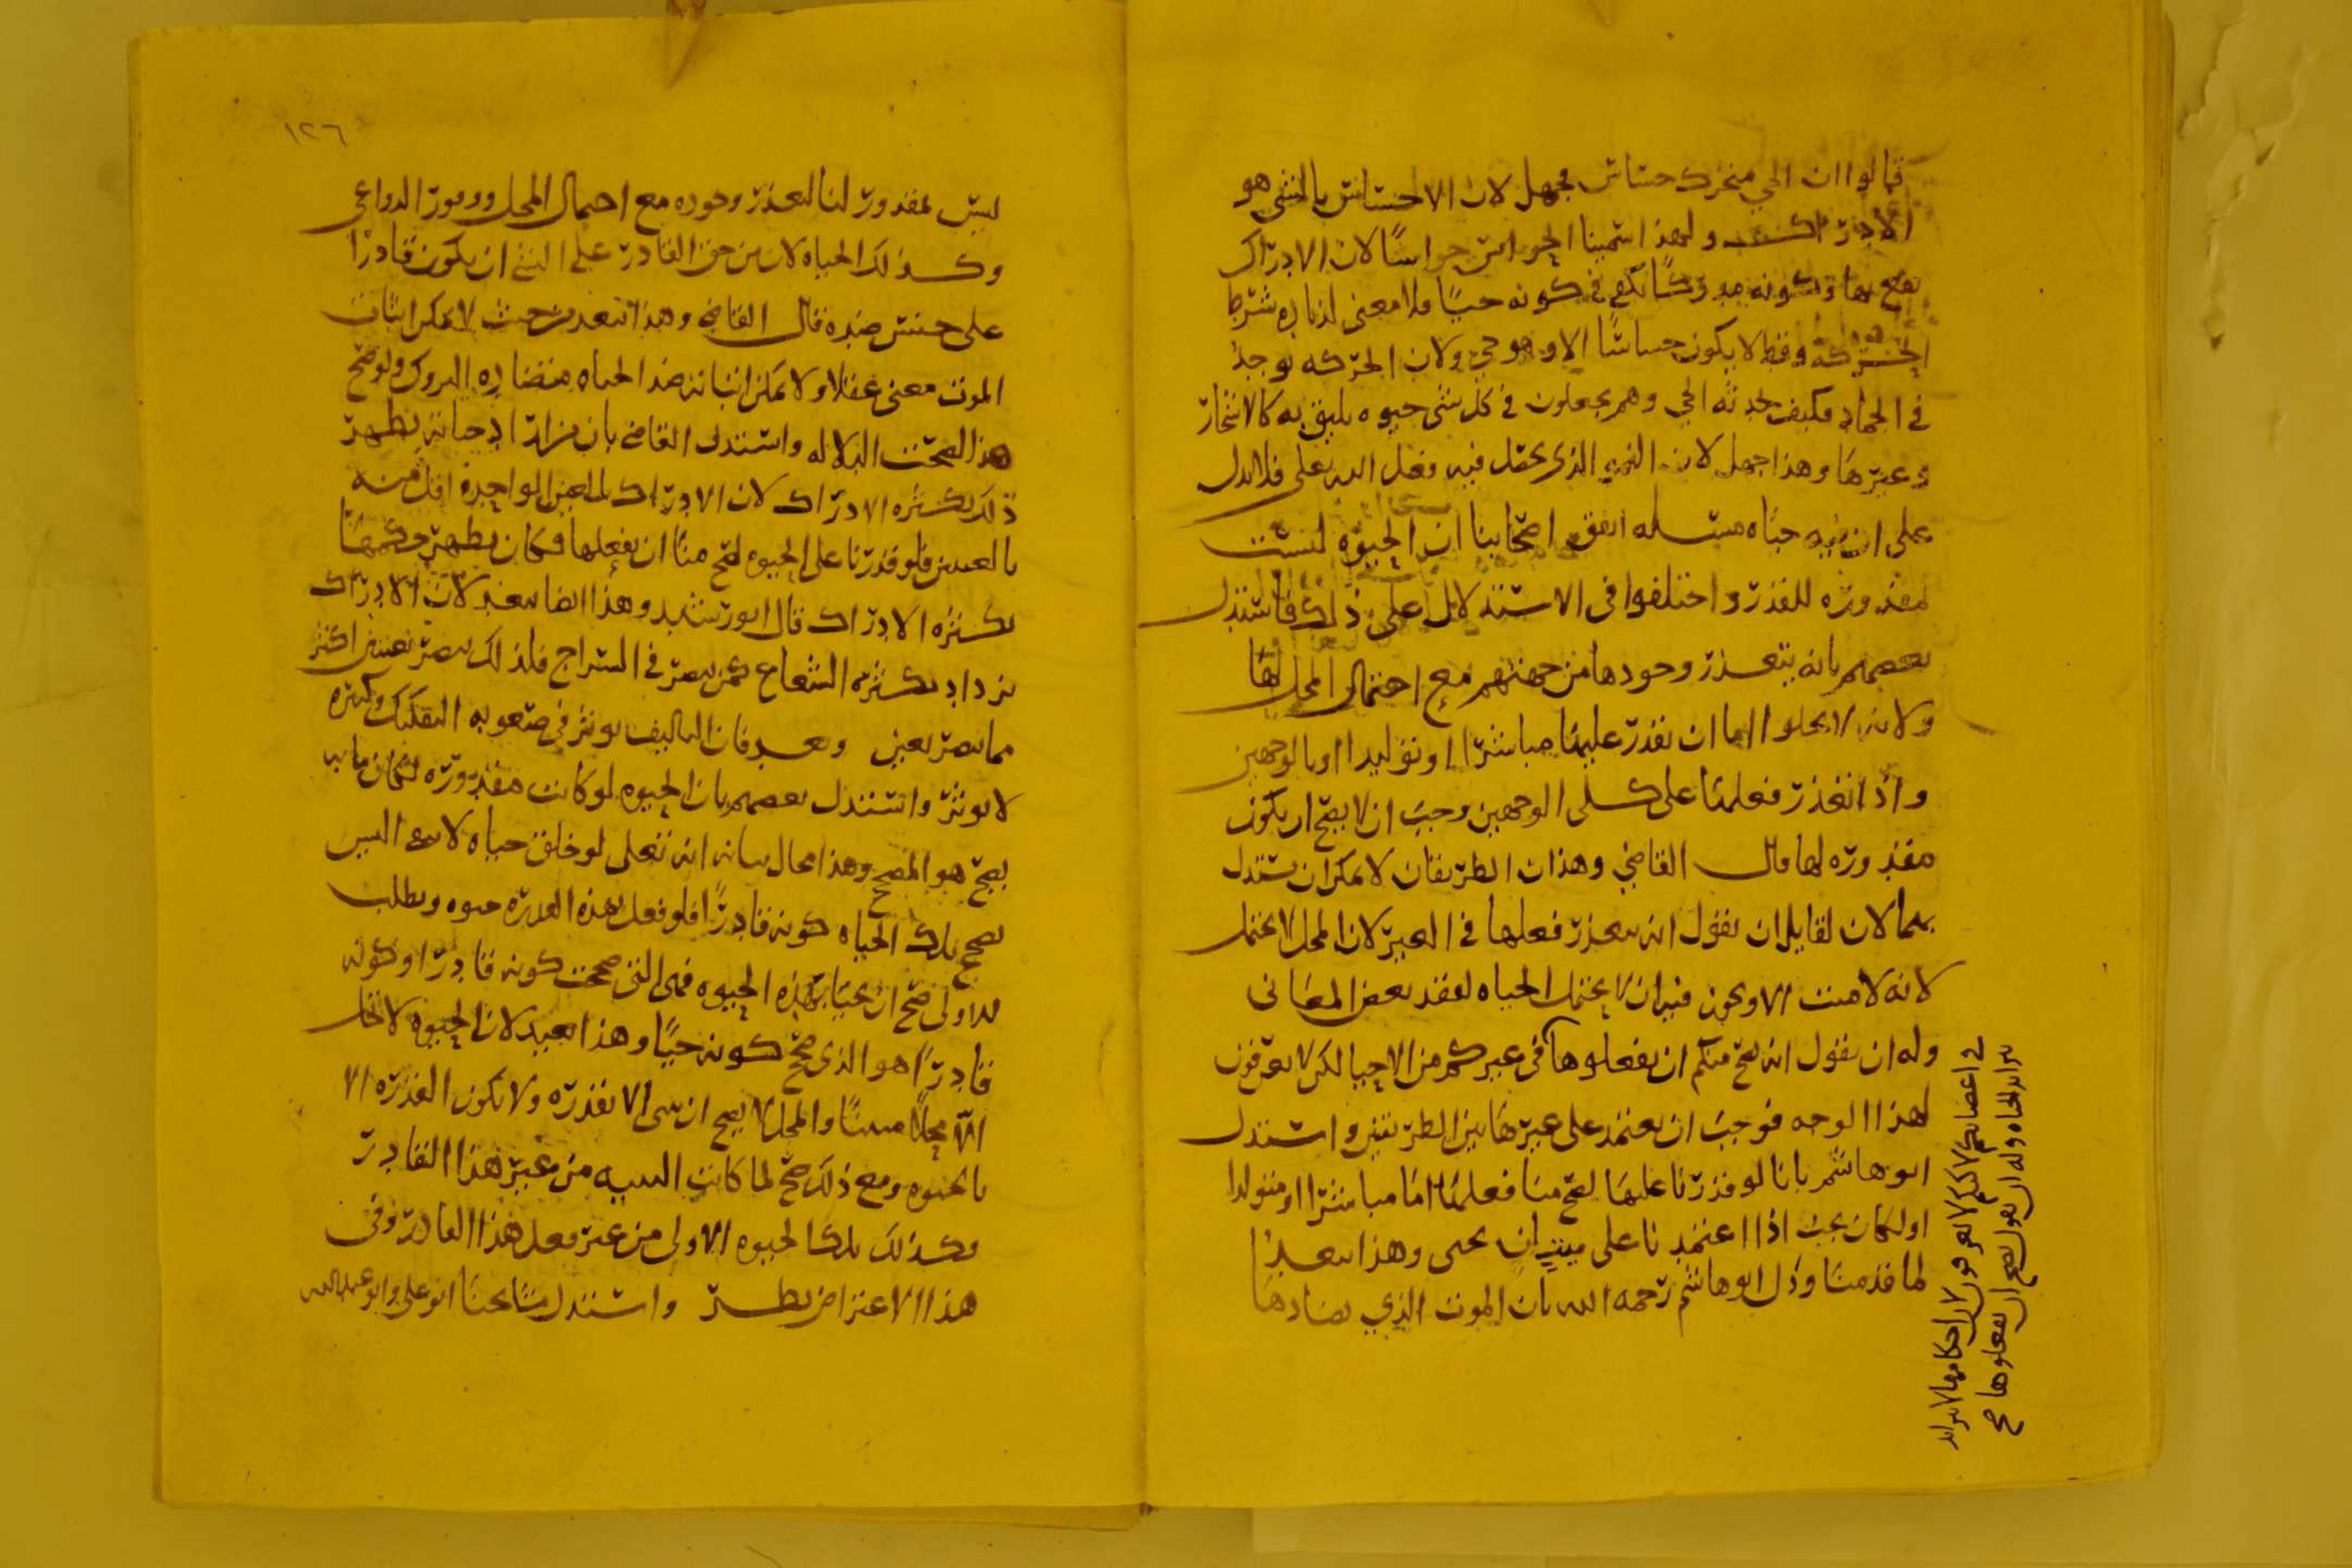 قالوا ان الحي متحرك حساس فجهل لان الاحساس بالشي هو
الادراك ولهذا سمينا الحواس حواسًا لان الادراك
يقع بها وكونه مدركًا يكفي في كونه حيًا فلا معنى لزياده شرط
الحركة وقط لا يكون حساسًا الا وهو حي ولان الحركه توجد
في الجماد فكيف يحد به الحي وهم يجعلون في كل شي حيوه يليق به كالاشجار
وغيرها وهذا جهل لان النمو الذي يحصل فيه فعل الله تعلى فلا يدل
على ان فيه حياه مسئله اتفق اصحابنا ان الحيوه ليست
بمقدوره للقدر واختلفوا في الاستدلال على ذلك فاستدل
بعضهم بانه يتعذر وجودها من جهتهم مع احتمال المحل لها
ولانه لا يخلوا اما ان نقدر عليها مباشرًا او توليدا او بالوجهين
واذا تعذر فعلها على كلى الوجهين وجب ان لا يصح ان يكون
مقدوره لها قال القاضي وهذان الطريقان لا يمكن ان يستدل
بهما لان لقايل ان يقول انه يتعذر فعلها في الغير لان المحل لا يحتمل
لانه لا ميت الا ويجوز فيه ان لا يحتمل الحياه لفقد بعض المعاني
وله ان يقول انه يصح منكم ان تفعلوها في غيركم من الاحيا لكن لا تعرفون
لهذا الوجه فوجب ان يعتمد على غير هاتين الطريقتين واستدل
ابو هاشم بانا لو قدرنا عليها لصح منا فعلها اما مباشرًا او متولدا
او لكان يجب اذا اعتمدنا على ميت ان يحيى وهذا يبعد
لما قدمنا ودل ابو هاشم رحمه الله بان الموت الذي يضادها
في اعضائكم لكنكم لا تعرفون لان احكامها لا تتزايد
بتزايد الحياه وله ان يقول يصح ان تفعلوها صح
١٢٦
ليس بمقدور لنا لتعذر وجوده مع احتمال المحل ووفور الدواعي
وكذلك الحياه لان من حق القادر على الشي ان يكون قادرًا
على جنس ضده قال القاضي وهذا يبعد من حيث لا يمكن اثبات
الموت معنى عقلا ولا يمكن اثباته ضد الحياه متضاده التروك ولو صح
هذا لصحت الدلاله واستدل القاضي بان تزايد حياته يظهر
ذلك بكثره الادراك لان الادراك بالعين الواحده اقل منه
بالعينين فلو قدرنا على الحيوه لصح منا ان نفعلها وكان يظهر حكمها
بكثره الادراك قال ابو رشيد وهذا ايضا يبعد لان الادراك
يزداد بكثره الشعاع كمن يبصر في السراج فلذلك يبصر بعينين اكثر
مما يبصر بعين وبعد فان التاليف يوثر في صعوبه التفكيك وكثره
لا يوثر واستدل بعضهم بان الحيوه لو كانت مقدوره لكان ما به
يصح هو المصحح وهذا محال بيانه انه تعلى لو خلق حياه
يصحح بتلك الحياه كونه قادرًا فلو فعل بهذه القدره حيوه وبطلت
الاولى صح ان يحيا بهذه الحيوه فهي التي صححت كونه قادرًا وكونه
قادرًا هو الذي صحح كونه حيًا وهذا بعيد لان الحيوه لا تحل
الا محلا مبنيًا والمحل لا يصح ان يبنى الا بقدره ولا تكون القدره الا
بالحيوه ومع ذلك صح لما كانت البنيه من غير هذا القادر
وكذلك تلك الحيوه الاولى من غير فعل هذا القادر وفي
هذا الاعتراض نظر واستدل شيخنا ابو علي وابو عبدالله